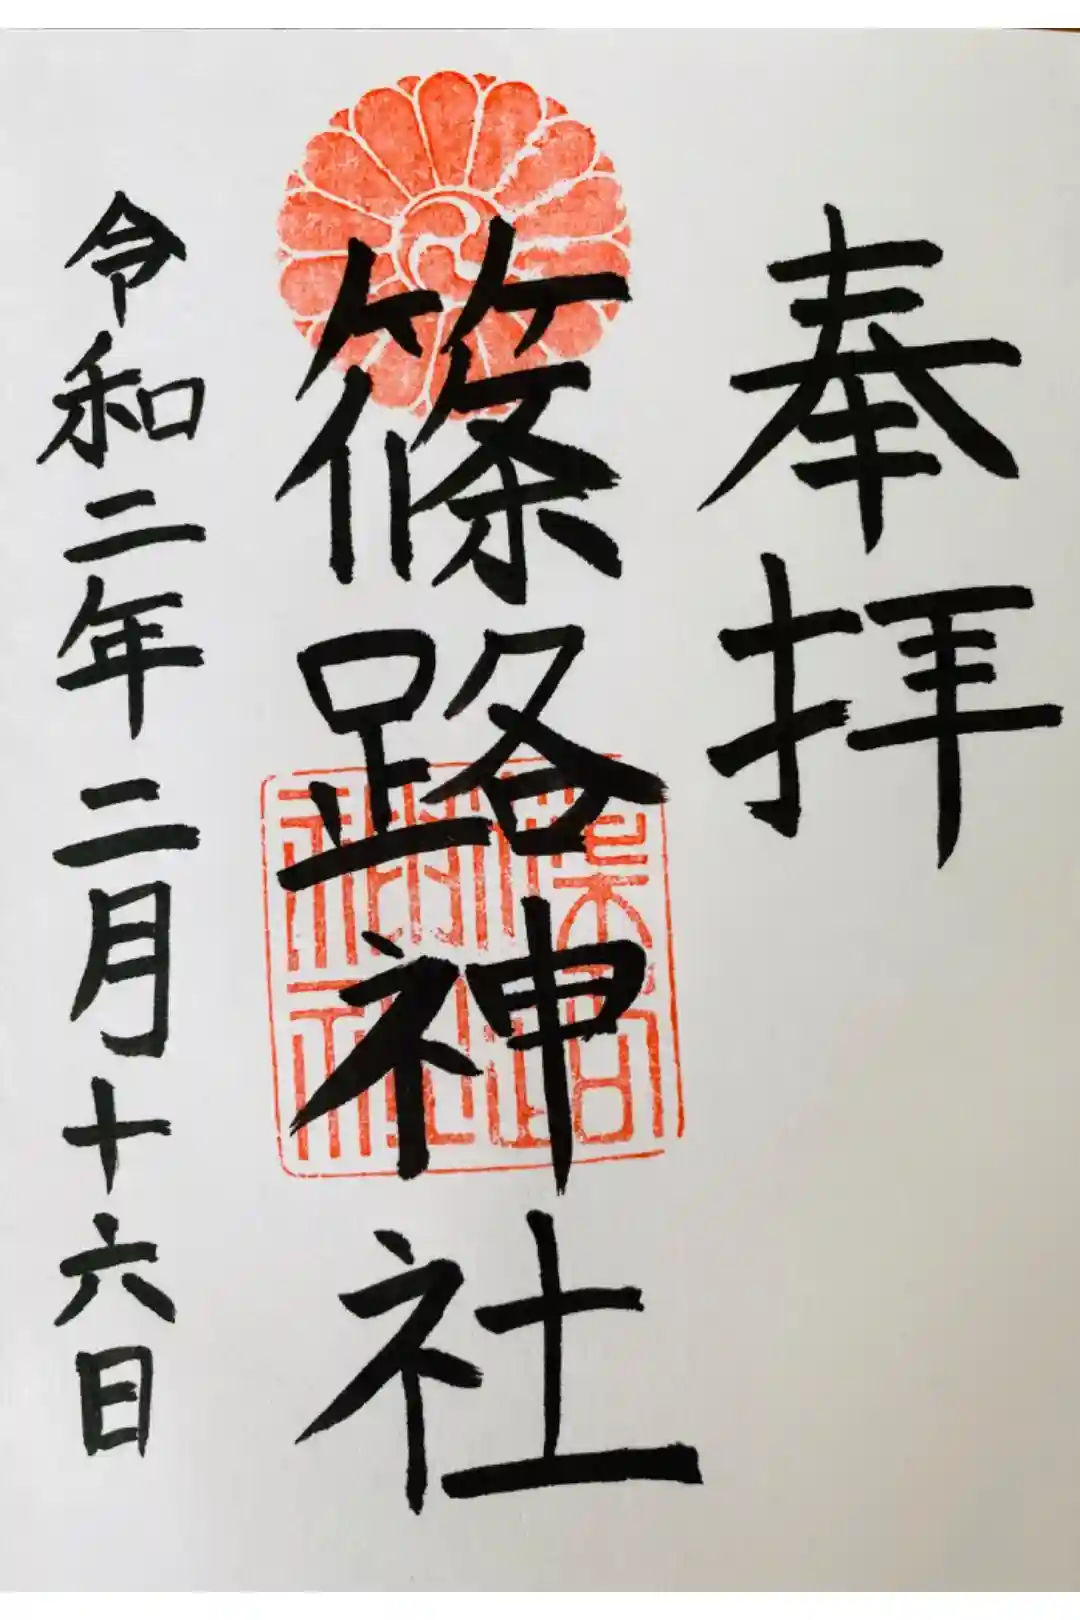 奉拝
篠路神社
令和二年二月十六日
篠路
神社